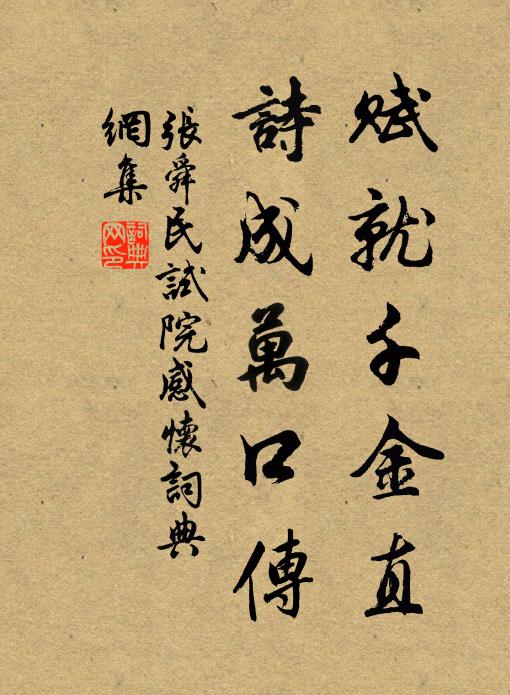 賦就千金直
詩成萬口傳
張舜民試院感懷詞典
網集
詞典
网印